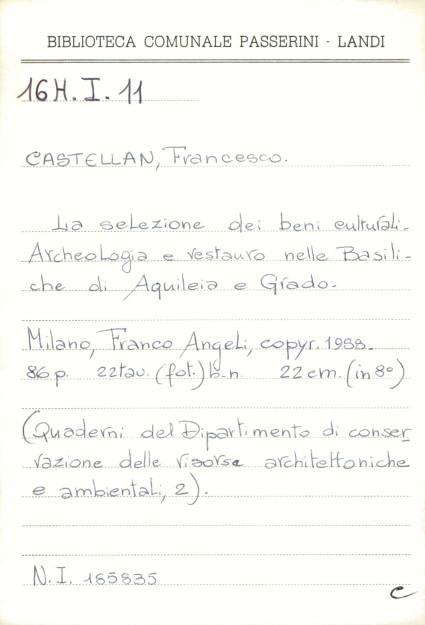 BIBLIOTECA COMUNALE PASSERINI - LANDI
16H.I.11
CASTELLAN, Francesco.
La selezione dei beni culturali.
Archeologia e restauro nelle Basili-
che di Aquileia e Grado.
Milano, Franco Angeli, copyr. 1988.
86 p. 22 tav. (fot.) b.n. 22 cm. (in 8°)
(Quaderni del Dipartimento di conser
vazione delle risorse architettoniche
e ambientali, 2).
N.I. 185835
c